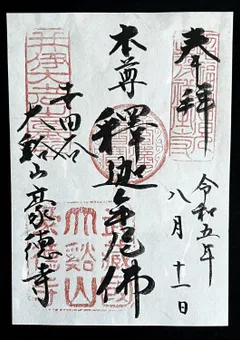 奉拝
令和五年
八月十一日
本尊
釋迦牟尼佛
世田谷
大谿山豪德寺
大谿山